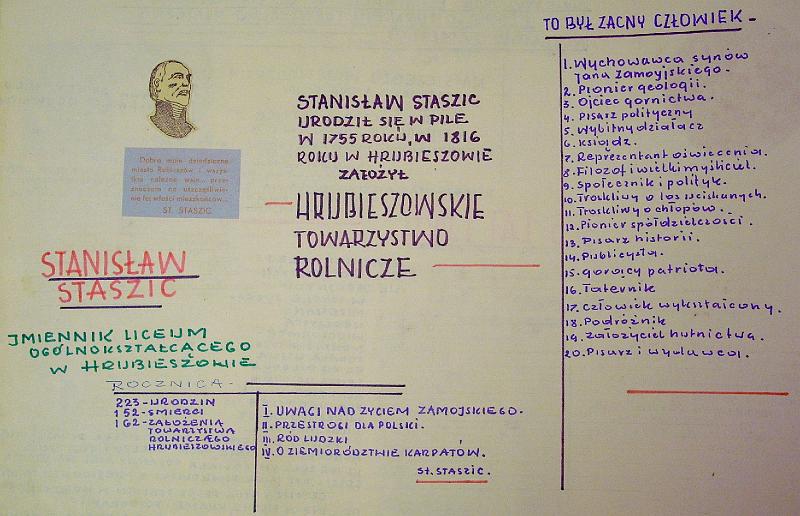 TO BYŁ ZACNY CZŁOWIEK -
Dobra moje dziedziczne
miasto Rubieszów i wszys-
tkie należne wsie... prze-
znaczam na uszczęśliwie-
nie tej włości mieszkańców...
ST. STASZIC
STANISŁAW
STASZIC
JMIENNIK LICEUM
OGÓLNOKSZTAŁCĄCEGO
W HRUBIESZOWIE
STANISŁAW STASZIC
URODZIŁ SIĘ W PILE
W 1755 ROKU, W 1816
ROKU W HRUBIESZOWIE
ZAŁOŻYŁ
HRUBIESZOWSKIE
TOWARZYSTWO
ROLNICZE
1. Wychowawca synów
Jana Zamoyjskiego.
2. Pionier geologii.
3. Ojciec górnictwa.
4. Pisarz polityczny
5. Wybitny działacz
6. Ksiądz.
7. Reprezentant oświecenia.
8. Filozof i wielki myśliciel.
9. Społecznik i polityk.
10. Troskliwy o los uciskanych.
11. Troskliwy o chłopów.
12. Pionier spółdzielczości.
13. Pisarz historii.
14. Publicysta.
15. gorący patriota.
16. Taternik
17. Człowiek wykształcony.
18. Podróżnik
19. Założyciel hutnictwa.
20. Pisarz i wydawca.
ROCZNICA -
223 - URODZIN
152 - ŚMIERCI
162 - ZAŁOŻENIA
TOWARZYSTWA
ROLNICZEGO
HRUBIESZOWSKIEGO
I. UWAGI NAD ŻYCIEM ZAMOJSKIEGO.
II. PRZESTROGI DLA POLSKI.
III. RÓD LUDZKI
IV. O ZIEMIORÓDZTWIE KARPATÓW.
St. STASZIC.